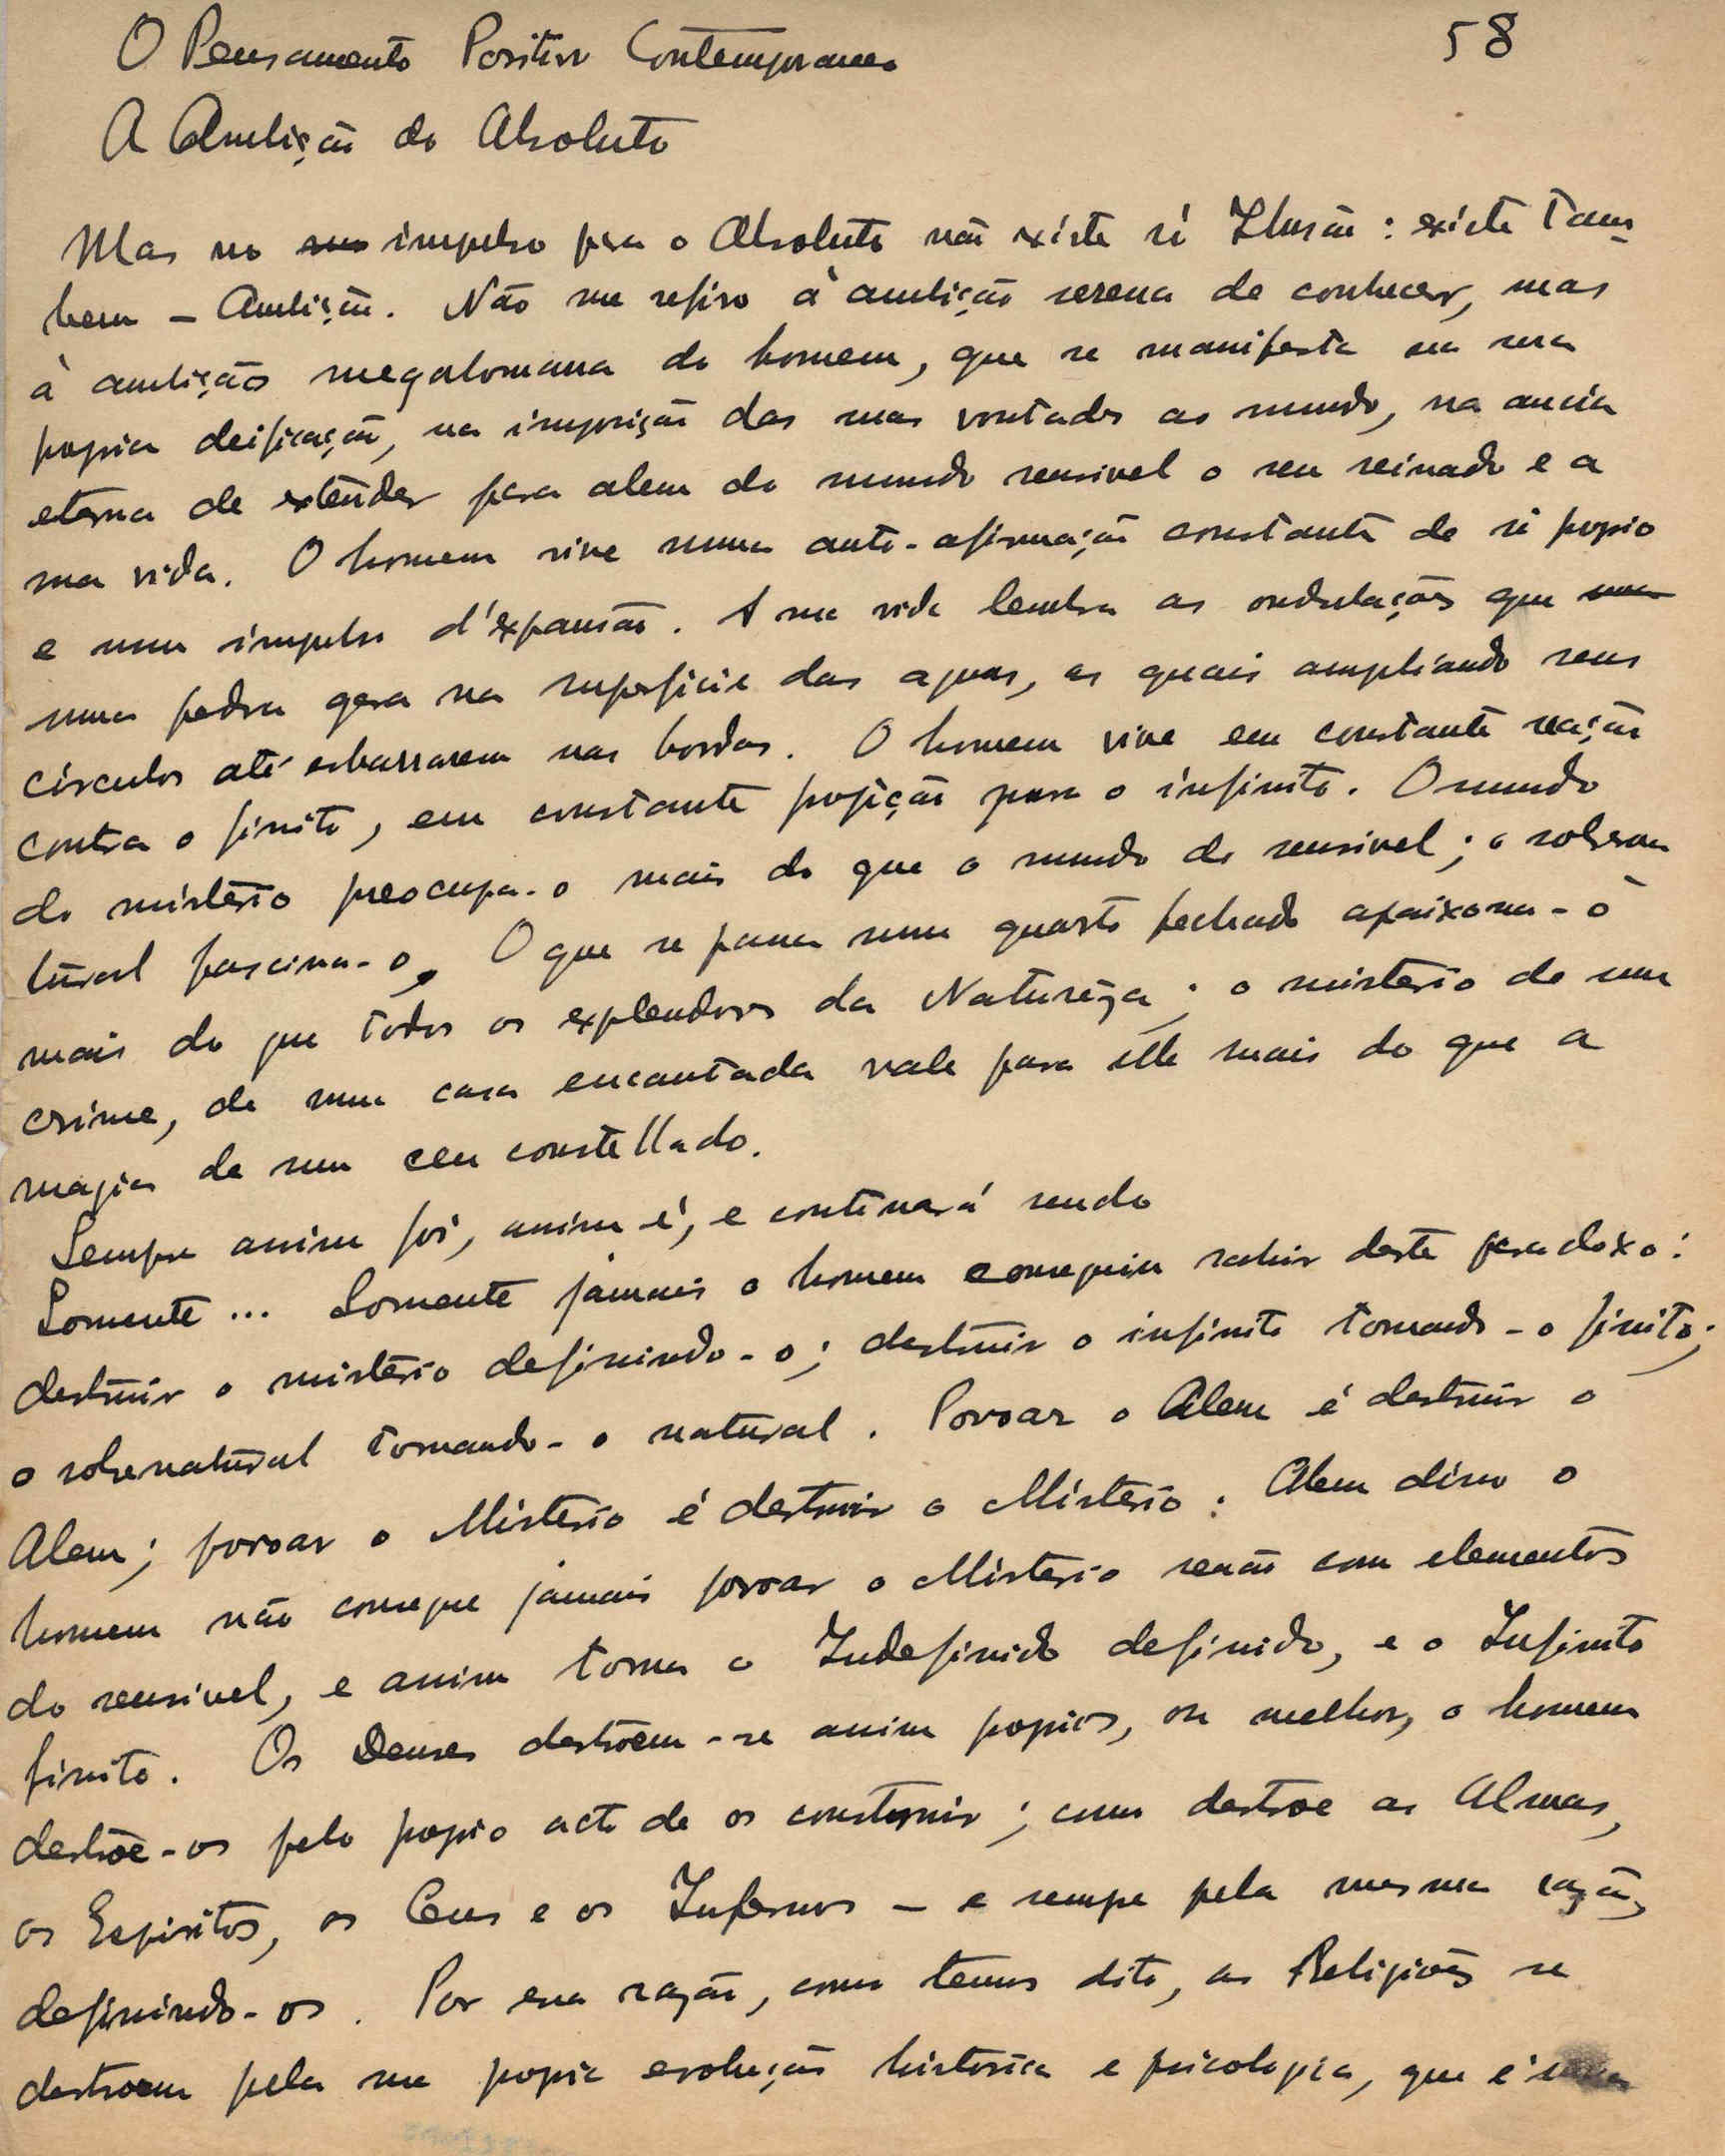 O Pensamento Positivo Contemporaneo
58
A Ambição do Absoluto
Mas no impulso pra o Absoluto não existe só Ilusão: existe tam-
bem – Ambição. Não me refiro á ambição serena de conhecer, mas
á ambição megalomana do homem, que se manifesta na sua
propria deificação, na imposição das suas vontades ao mundo, na ancia
eterna de extender para alem do mundo sensivel o seu reinado e a
sua vida. O homem vive numa auto-afirmação constante de si proprio
e num impulso d'expansão. A sua vida lembra as ondulações que
uma pedra gera na superficie das aguas, as quais ampliando seus
círculos até esbarrarem nas bordas. O homem vive em constante reação
contra o finito, em constante projeção para o infinito. O mundo
do mistério preocupa-o mais do que o mundo do sensivel; o sobrena
tural fascina-o. O que se passa num quarto fechado apaixona-o
mais do que todos os explendores da Naturêza; o misterio de um
crime, de uma casa encantada vale para elle mais do que a
magia de um ceu constellado.
Sempre assim foi, assim é, e continará sendo
Somente ... Somente jamais o homem conseguiu sahir deste paradoxo:
destruir o mistério definindo-o; destruir o infinito tornando-o finito;
o sobrenatural tornando-o natural. Povoar o Alem é destruir o
Alem; povoar o Misterio é destruir o Misterio. Alem disso o
homem não consegue jamais povoar o Misterio senão com elementos
do sensivel, e assim torna o Indefinido definido, e o Infinito
finito. Os Deuses destroem-se assim proprios, ou melhor, o homem
destróe-os pelo proprio acto de os construir; como destroe as Almas,
os Espiritos, os Ceus e os Infernos – e sempre pela mesma razão,
definindo-os. Por essa razão, como temos dito, as Religiões se
destroem pela sua propria evolução historica e psicologica, que é